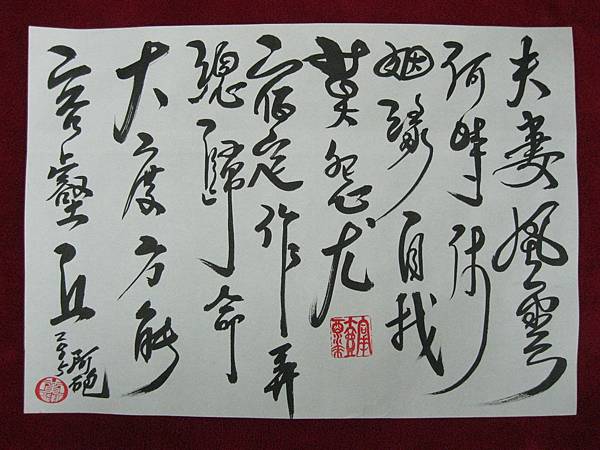 夫妻風雲
何時休
姻緣自找
莫怨尤
宿定作弄
總歸命
大度方能
容壑丘
阿砲